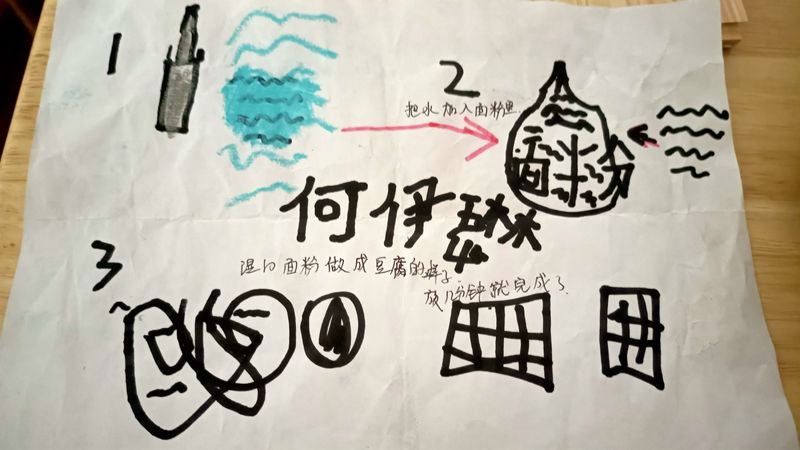 1
2
把水加入面粉里
面粉
何伊琳
3
湿的面粉做成豆腐的样子
放几分钟就完成了.
4